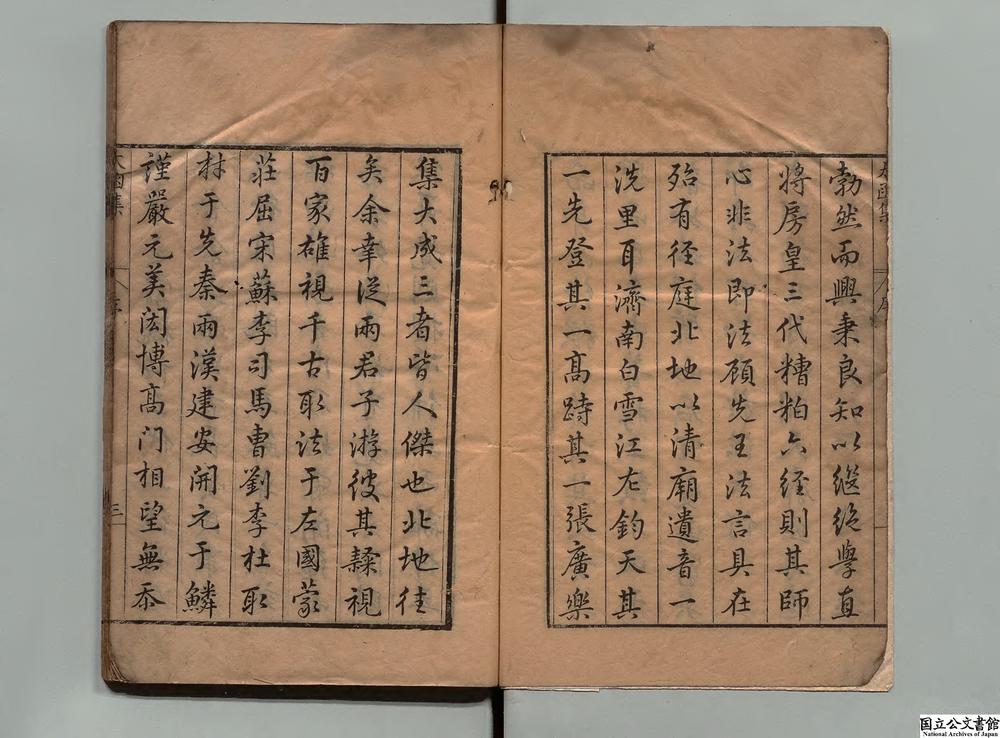 勃然而興秉良知以繼絶學直
將房皇三代糟粕六經則其師
心非法即法顧先王法言具在
殆有徑庭北地以清廟遺音一
洗里耳濟南白雪江左鈞天其
一先登其一高跱其一張廣樂
集大成三者皆人傑也北地往
矣余幸從兩君子游彼其鞣視
百家雄視千古取法于左國蒙
莊屈宋蘇李司馬曹劉李杜取
材于先秦兩漢建安開元于鱗
謹嚴元美閎博高門相望無忝
三
国立公文書館
National Archives of Japan